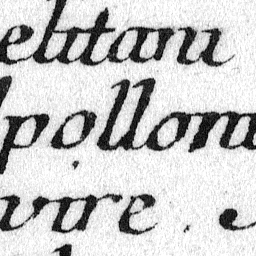 elitani
polloni
vire.